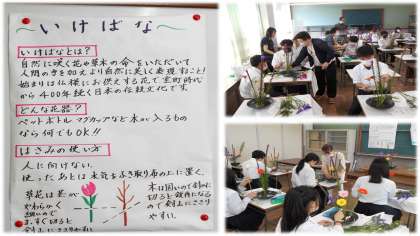 ～いけばな～
いけばなとは？
自然に咲く花や草木の命をいただいて
人間の手を加えより自然に美しく表現すること！
始まりは仏様にお供えする花で室町時代
から400年続く日本の伝統文化です
どんな花器？
ペットボトル マグカップなど水が入るもの
なら何でもOK!!
はさみの使い方
人に向けない。
使ったあとは水気をふき取り布の上に置く。
草花は茎が
やわらかく
細いので
まっすぐ切ると
剣山にささりやすい
木は固いので斜めに
切ると鋭角になる
ので剣山にささり
やすい。